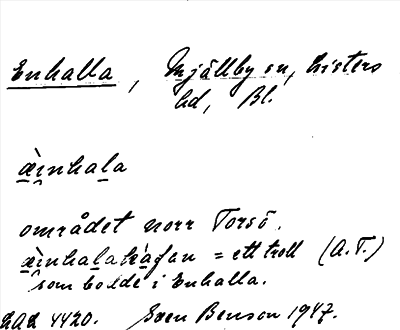 Enhalla, Mjällby sn, Listers
hd, Bl.
æ̀inhala
området norr Torsö.
æ̀inhalakàfan = ett troll (A.T.)
som bodde i Enhalla.
LAL 4420. Sven Benson 1947.